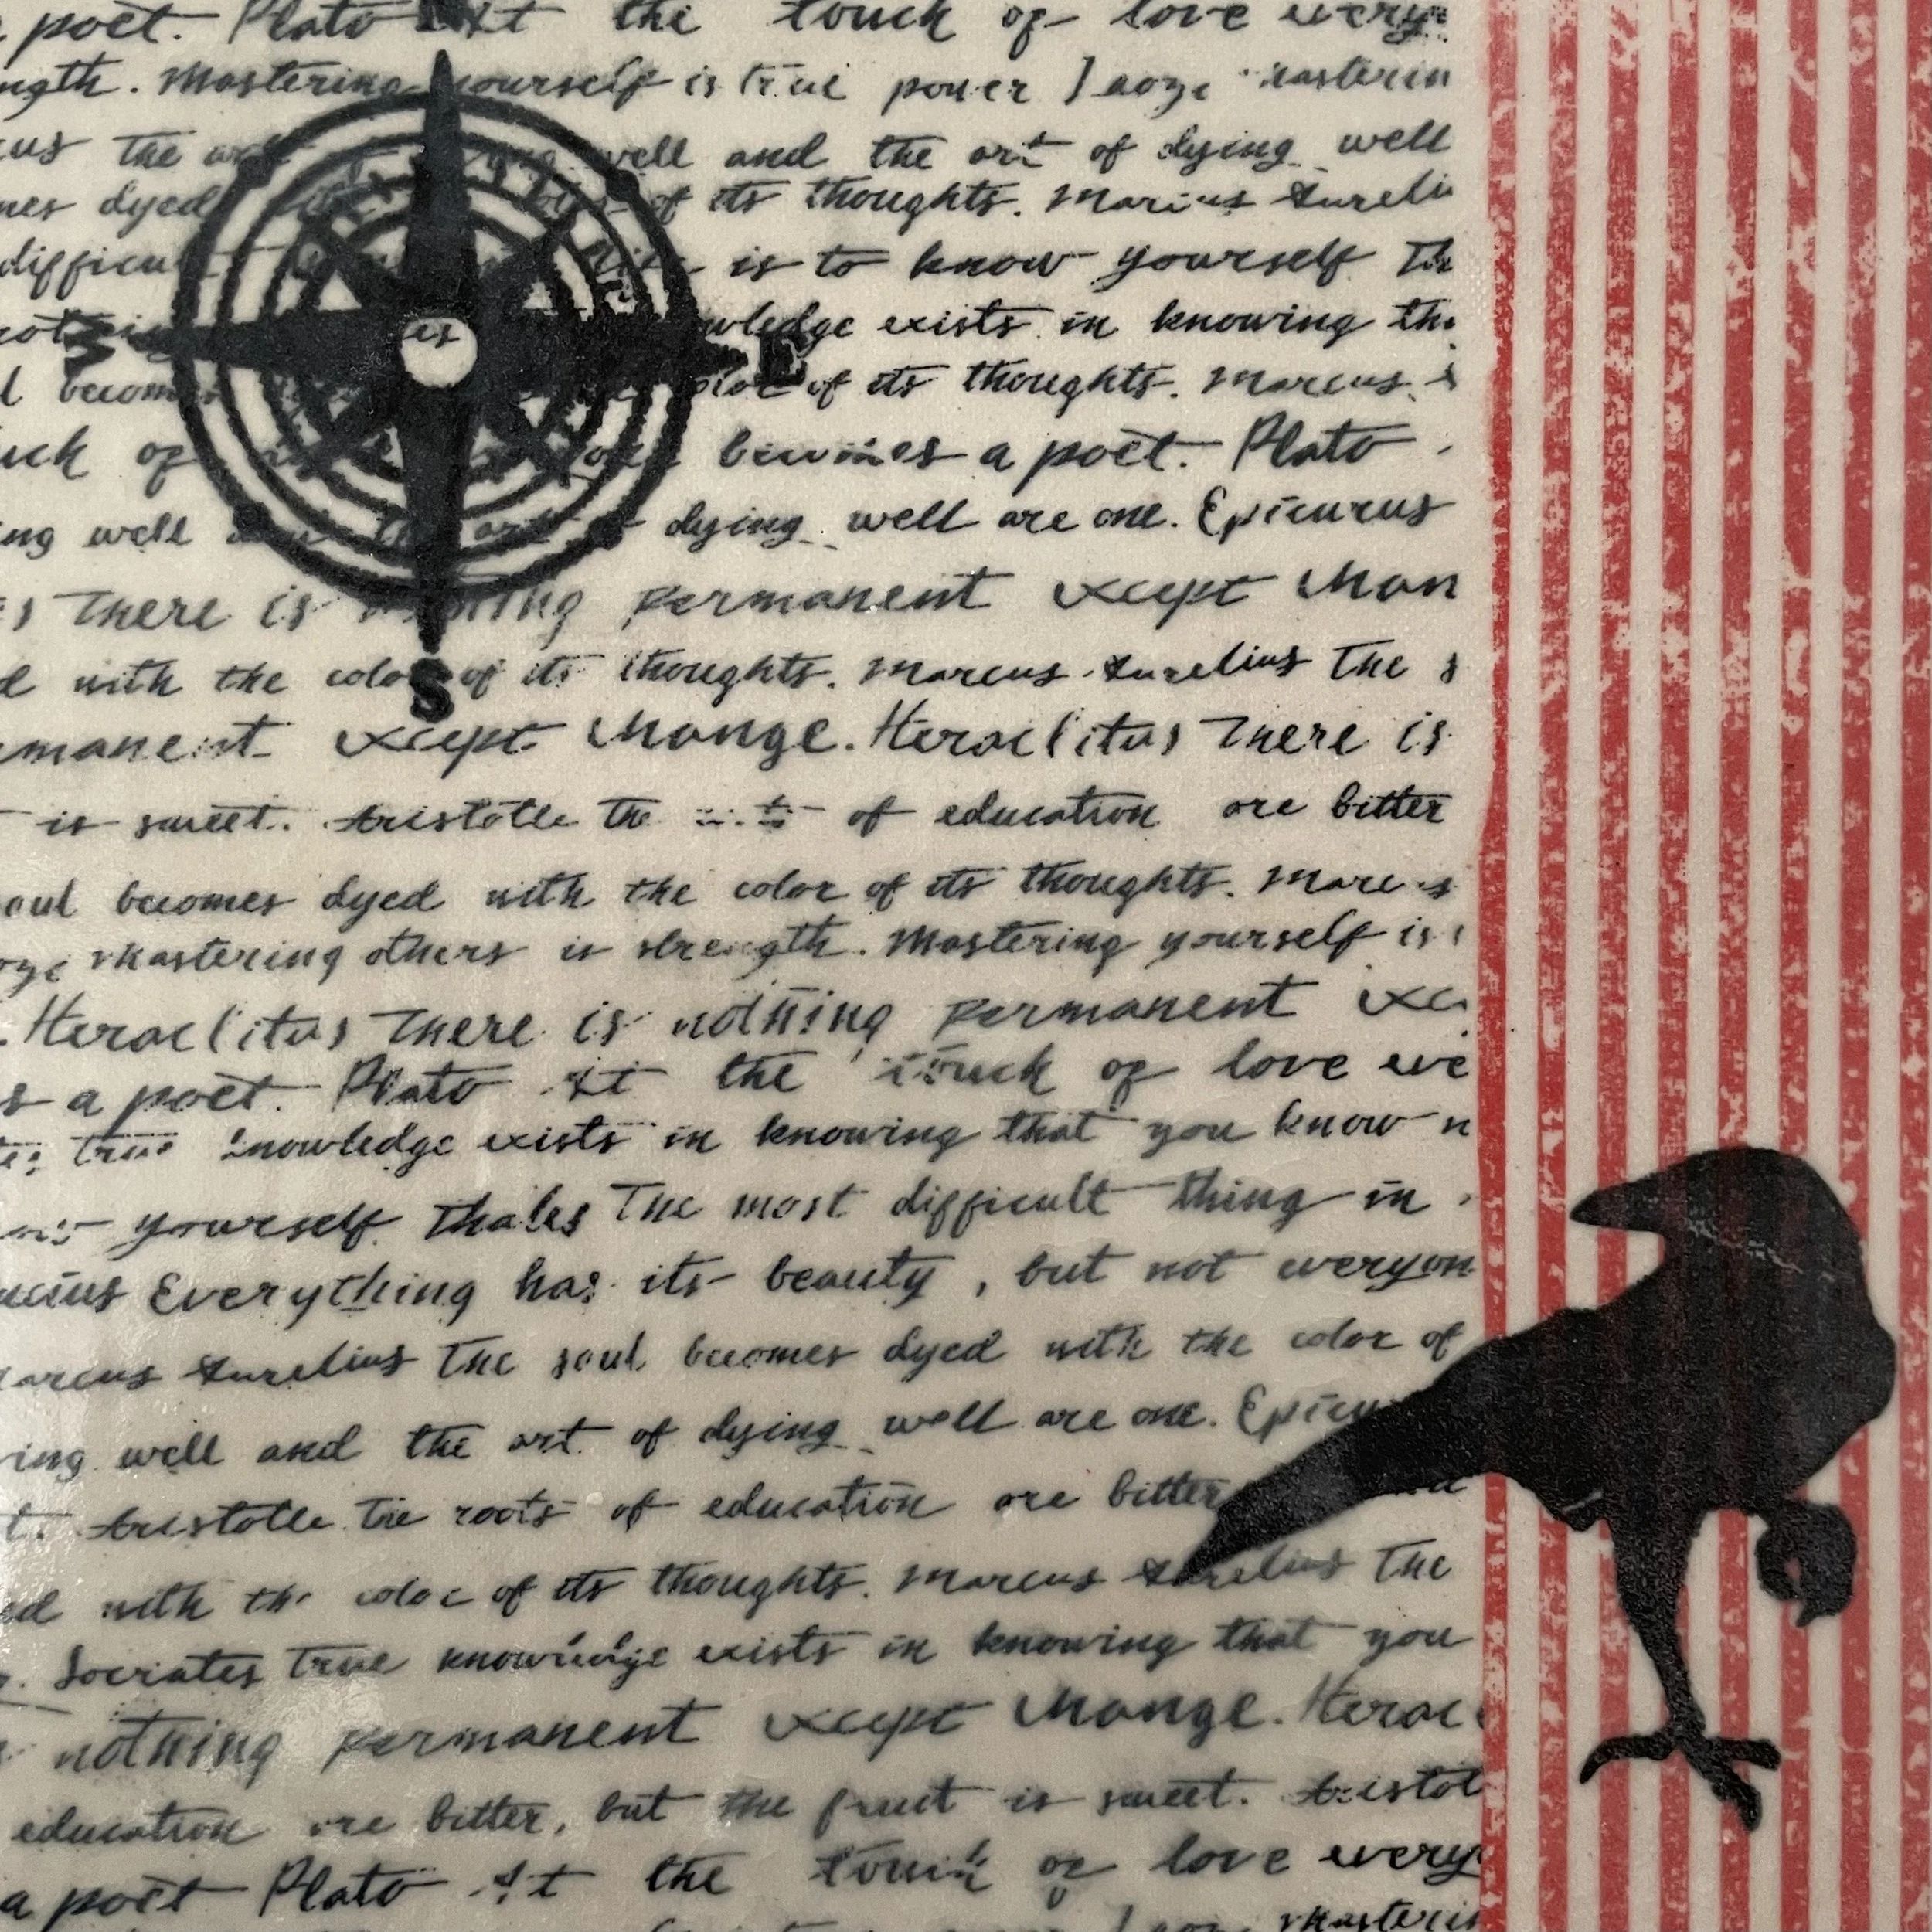 poet. Plato At the touch of love every
ngth. Mastering yourself is true power Laoze Masterin
us The art well and the art of dying well
mes dyed of its thoughts. Marcus Aureli
difficult is to know yourself Th
wledge exists in knowing tha
l becomes color of its thoughts. Marcus
uch of becomes a poet. Plato
ng well art dying well are one. Epicurus
s There is nothing permanent except chan
d with the color of its thoughts. Marcus Aurelius The s
S
manent except change. Heraclitus There is
is sweet. Aristotle the of education are bitter
oul becomes dyed with the color of its thoughts. Marcus
oze Mastering others is strength. Mastering yourself is
. Heraclitus There is nothing permanent exc
s a poet. Plato At the touch of love eve
true knowledge exists in knowing that you know n
yourself thales The most difficult thing in
ucius Everything has its beauty, but not everyon
arcus Aurelius The soul becomes dyed with the color of
ing well and the art of dying well are one. Epicu
t. Aristotle The roots of education are bitter
ed with the color of its thoughts. Marcus Aurelius The
. Socrates True knowledge exists in knowing that you
nothing permanent except change. Herac
education are bitter, but the fruit is sweet. Aristot
a poet Plato At the touch of love every
Masterin